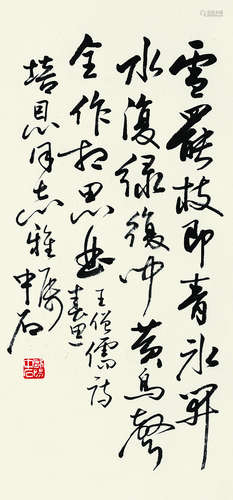 雪罷枝即青冰開
水復綠復聞黃鳥聲
全作相思曲
王僧儒詩
春思
培恩同志雅屬
中石